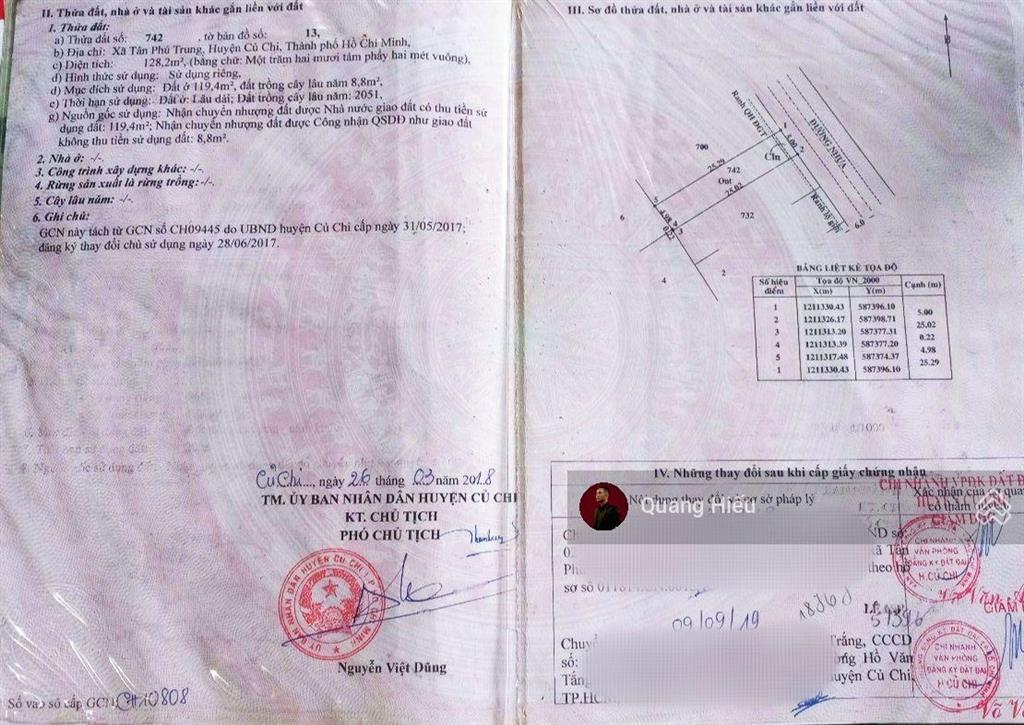 II. Thửa đất, nhà ở và tài sản khác gắn liền với đất
1. Thửa đất:
a) Thửa đất số: 742 , tờ bản đồ số: 13,
b) Địa chỉ: Xã Tân Phú Trung, Huyện Củ Chi, Thành phố Hồ Chí Minh,
c) Diện tích: 128,2m², (bằng chữ: Một trăm hai mươi tám phẩy hai mét vuông),
d) Hình thức sử dụng: Sử dụng riêng,
đ) Mục đích sử dụng: Đất ở 119,4m², đất trồng cây lâu năm 8,8m²,
e) Thời hạn sử dụng: Đất ở: Lâu dài; Đất trồng cây lâu năm: 2051,
g) Nguồn gốc sử dụng: Nhận chuyển nhượng đất được Nhà nước giao đất có thu tiền sử
dụng đất: 119,4m²; Nhận chuyển nhượng đất được Công nhận QSDĐ như giao đất
không thu tiền sử dụng đất: 8,8m².
2. Nhà ở: -/-.
3. Công trình xây dựng khác: -/-.
4. Rừng sản xuất là rừng trồng:-/-.
5. Cây lâu năm: -/-.
6. Ghi chú:
GCN này tách từ GCN số CH09445 do UBND huyện Củ Chi cấp ngày 31/05/2017;
đăng ký thay đổi chủ sử dụng ngày 28/06/2017.
Củ Chi..., ngày 26 tháng 03 năm 2018
TM. ỦY BAN NHÂN DÂN HUYỆN CỦ CHI
KT. CHỦ TỊCH
PHÓ CHỦ TỊCH
Nguyễn Việt Dũng
Số vào sổ cấp GCN: CH10808
III. Sơ đồ thửa đất, nhà ở và tài sản khác gắn liền với đất
B
Ranh QH ĐGT
ĐƯỜNG NHỰA
Ranh lộ giới
6.0
700
25.29
742
Ont
25.02
Cln
5.00
1
2
732
5
4.98
3
0.22
6
4
2
BẢNG LIỆT KÊ TỌA ĐỘ
Số hiệu điểm Tọa độ VN_2000 Cạnh (m)
X(m) Y(m)
1 1211330.43 587396.10
5.00
2 1211326.17 587398.71
25.02
3 1211313.20 587377.31
0.22
4 1211313.39 587377.20
4.98
5 1211317.48 587374.37
25.29
1 1211330.43 587396.10
IV. Những thay đổi sau khi cấp giấy chứng nhận
Nội dung thay đổi và cơ sở pháp lý
Xác nhận của cơ quan
có thẩm quyền
Quang Hiếu
CHI NHÁNH VPĐK ĐẤT Đ
GIÁM Đ
CHI NHÁNH
VĂN PHÒNG
ĐĂNG KÝ ĐẤT ĐAI
H.CỦ CHI
theo hồ
sơ số
09/09/19
51396
Trắng, CCCD
số:
Hồ Văn
Tắng
huyện Củ Chi,
TP.HC
CHI NHÁNH
VĂN PHÒNG
ĐĂNG KÝ ĐẤT ĐAI
H.CỦ CHI